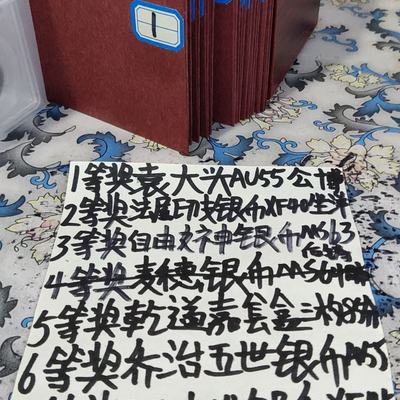 1
1等奖袁大头AU55公博
2等奖法属印支银币XF40
3等奖自由女神银币MS63
4等奖麦穗银币MS64
5等奖乾道嘉套金三均85
6等奖乔治五世银币AU55